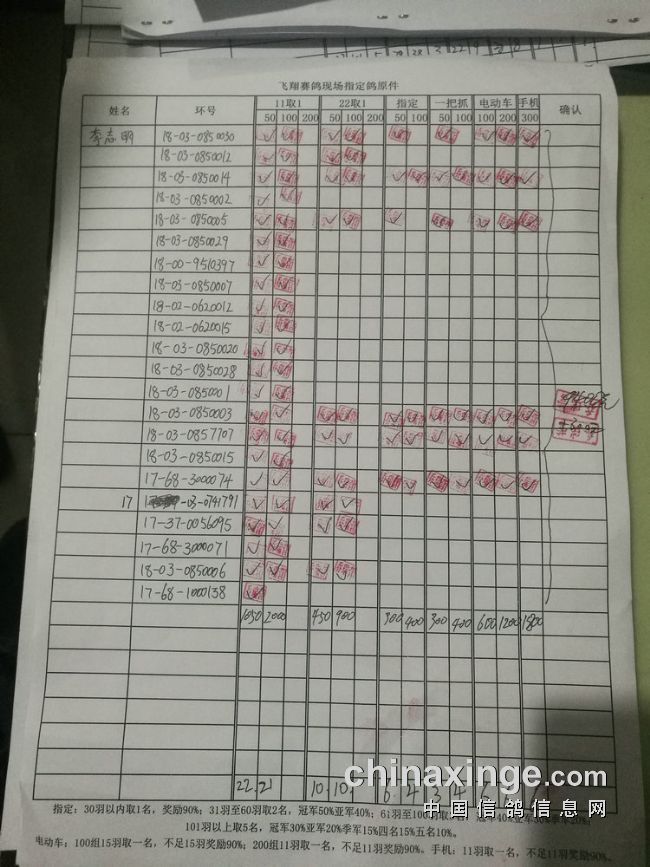 飞翔赛鸽现场指定鸽原件
姓名 环号 11取1 22取1 指定 一把抓 电动车 手机 确认
50 100 200 50 100 200 50 100 50 100 100 200 300
李志明 18-03-0850030
18-03-0850012
18-03-0850014
18-03-0850002
18-03-0850005
18-03-0850029
18-00-9510397
18-03-0850007
18-02-0620012
18-02-0620015
18-03-0850020
18-03-0850028
18-03-0850001
18-03-0850003
18-03-0857707
18-03-0850015
17-68-300074
17 -03-0741791
17-37-0056095
17-68-3000071
18-03-0850006
17-68-1000138
1050 2000 450 900 300 400 300 400 600 1200 1800
22 21 10 10 6 4 3 4 6
指定：30羽以内取1名，奖励90%；31羽至60羽取2名，冠军50%亚军40%；61羽至100羽
101羽以上取5名，冠军30%亚军20%季军15%四名15%五名10%。
电动车：100组15羽取一名，不足15羽奖励90%；200组11羽取一名，不足11羽奖励90%。手机：11羽取一名，不足11羽奖励90%。
chinaxinge.com
中国信鸽信息网